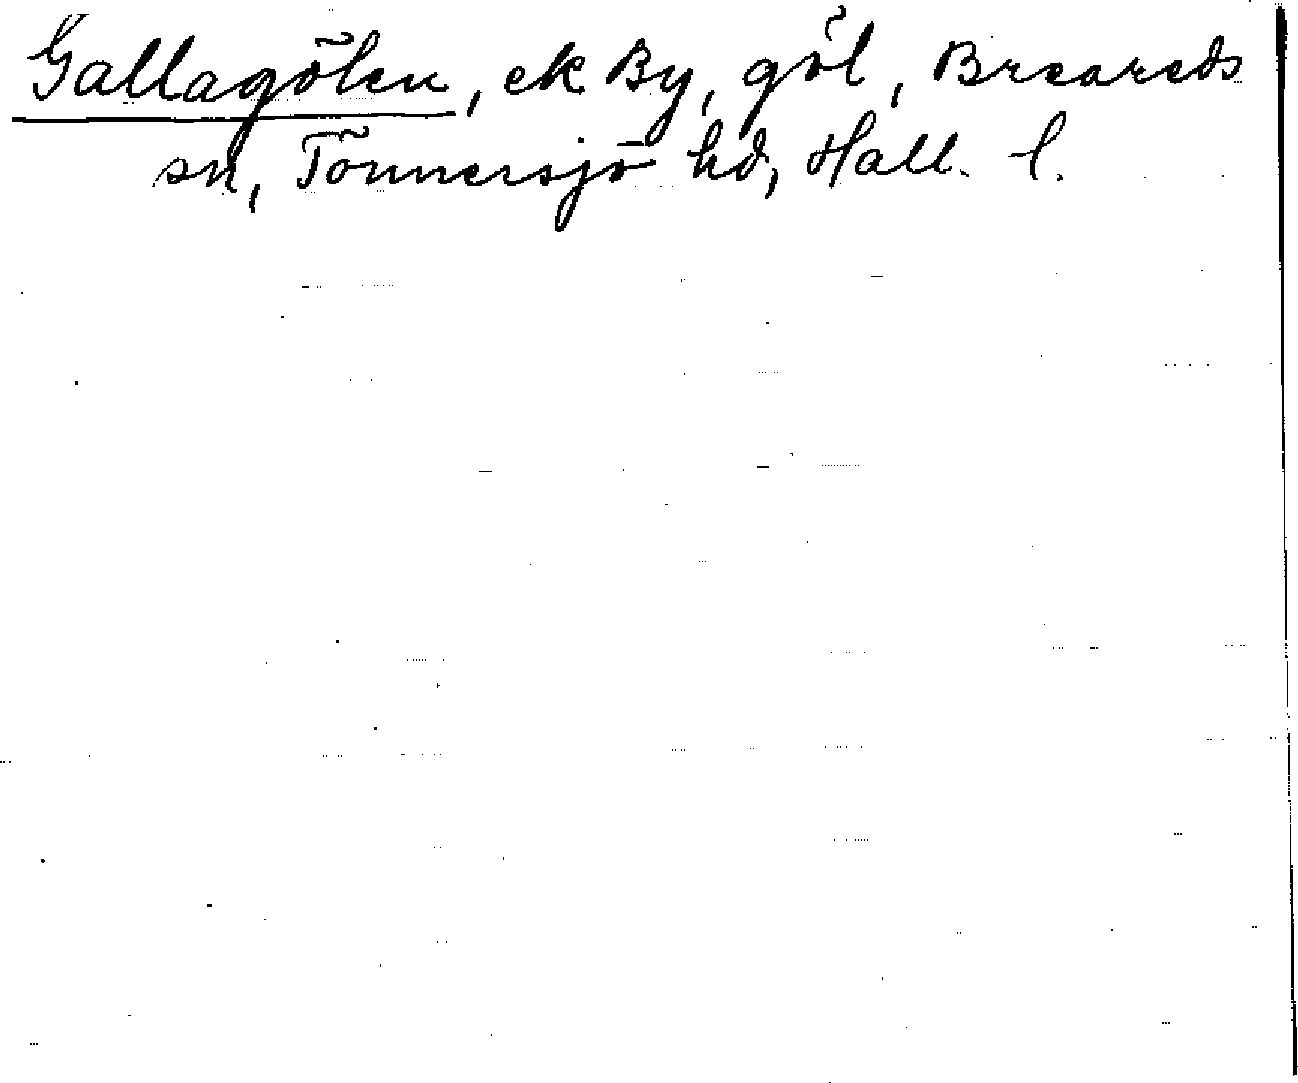 Gallagölen, ek By, göl, Breareds
sn, Tönnersjö hd, Hall. l.